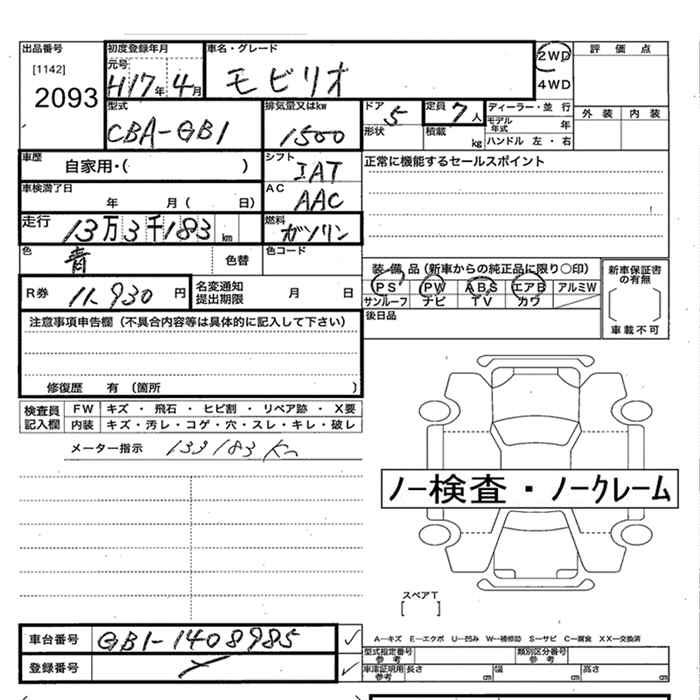 出品番号 初度登録年月 車名・グレード 評価点
[1142] 元号 2WD
2093 H17年 4月 モビリオ 4WD
外装 内装
型式 排気量又はkw ドア 定員 ディーラー・並行
CBA-GB1 1500 5 7人 モデル年式 年
形状 積載 kg ハンドル 左・右
車歴 シフト 正常に機能するセールスポイント
自家用・( ) IAT
車検満了日 AC
年 月( 日) AAC
走行 燃料
13万3千183km ガソリン
色 色替 色コード
青
装備品(新車からの純正品に限り〇印) 新車保証書の有無
PS PW ABS エアB アルミW
サンルーフ ナビ TV カワ
R券 11,930円 名変通知提出期限 月 日
後日品 車載不可
注意事項申告欄(不具合内容等は具体的に記入して下さい)
修復歴 有(箇所 )
検査員記入欄 FW キズ・飛石・ヒビ割・リペア跡・X要
内装 キズ・汚レ・コゲ・穴・スレ・キレ・破レ
メーター指示 133183Km
ノー検査・ノークレーム
スペアT
[ ]
車台番号 GB1-1408985
A―キズ E―エクボ U―凹み W―補修跡 S―サビ C―腐食 XX―交換済
型式指定番号 参考 類別区分番号 参考
登録番号
車庫証明用 参考 長さ cm 幅 cm 高さ cm